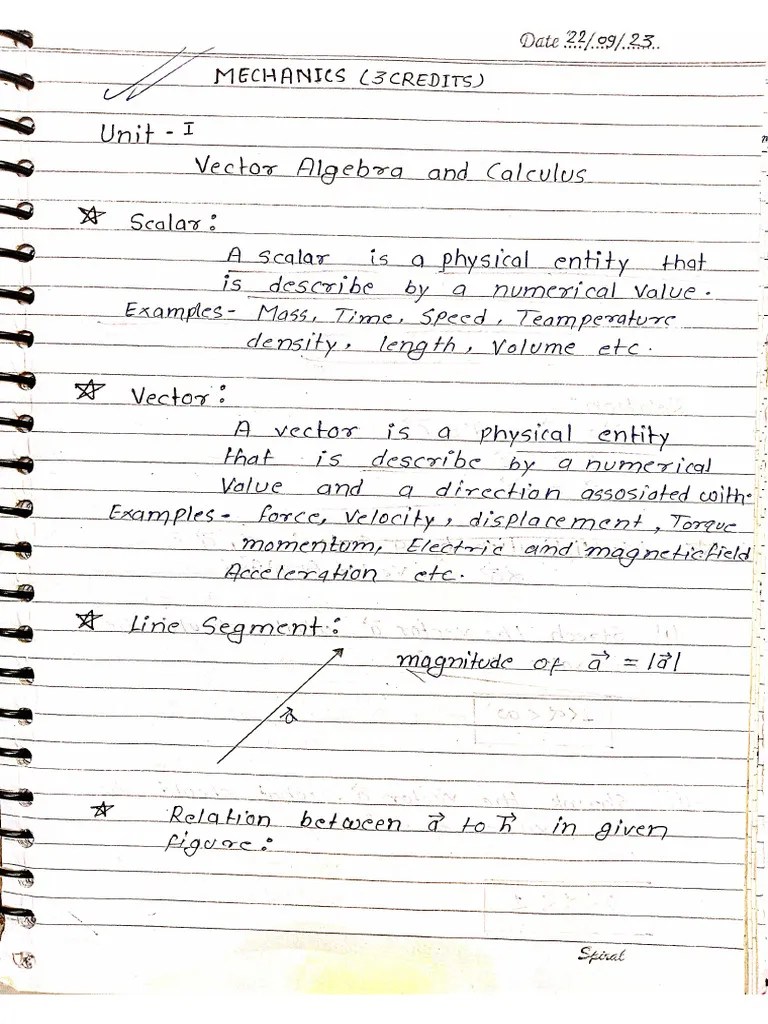 Date 22/09/23
MECHANICS (3CREDITS)
Unit - I
Vector Algebra and Calculus
☆ Scalar:
A scalar is a physical entity that
is describe by a numerical value.
Examples- Mass, Time, Speed, Teamperature
density, length, volume etc.
☆ Vector:
A vector is a physical entity
that is describe by a numerical
value and a direction assosiated with.
Examples- force, velocity, displacement, Torque
momentum, Electric and magneticfield
Acceleration etc.
☆ Line Segment:
magnitude of a⃗ = |a⃗|
a⃗
☆ Relation between a⃗ to h⃗ in given
figure:
Spiral